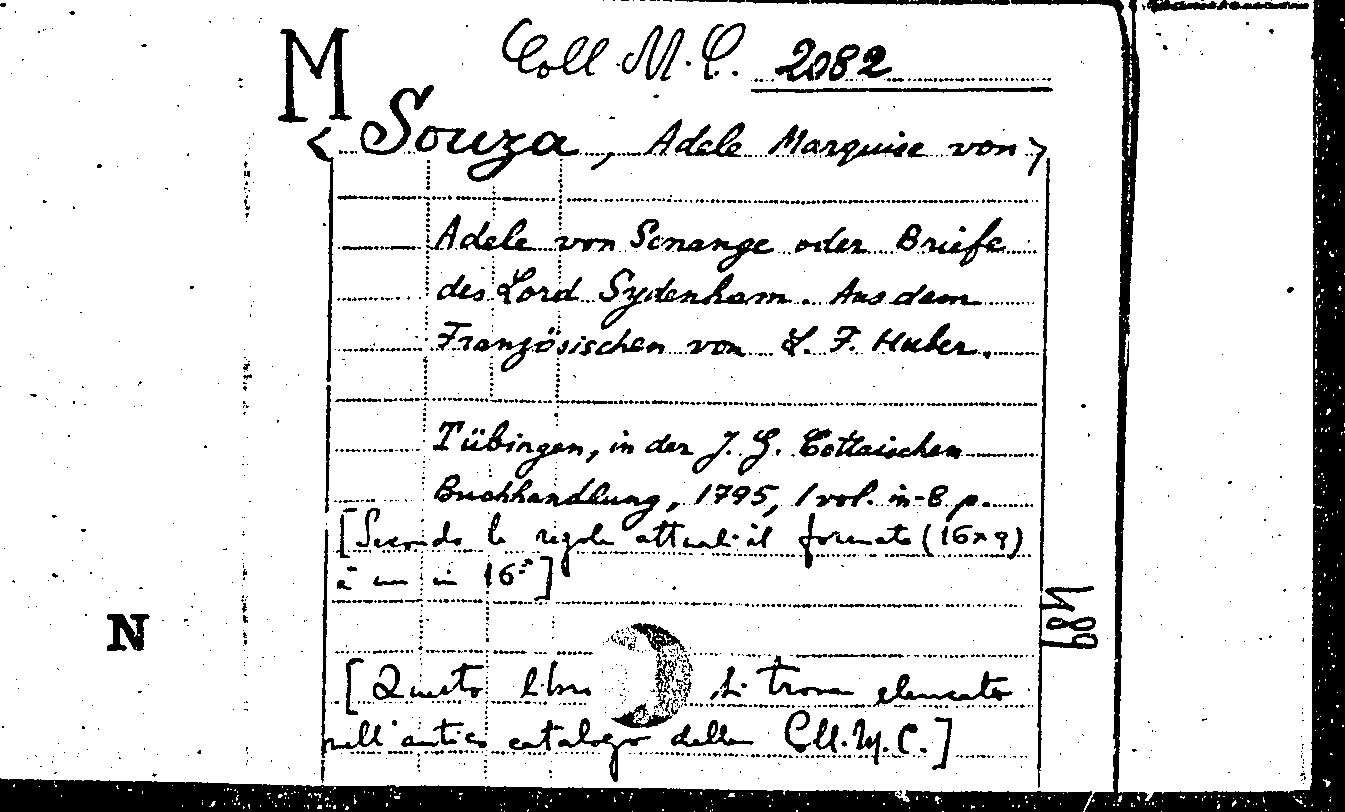 M
Coll M.C. 2082
< Souza, Adele Marquise von >
Adele von Senange oder Briefe
des Lord Sydenham. Aus dem
Französischen von L. F. Huber.
Tübingen, in der J. G. Cottaischen
Buchhandlung, 1795, 1 vol. in-8 p.
[Secondo le regole attuali il formato (16x9)
è un in 16°]
N
[Questo libro si trova elencato
nell'antico catalogo della Coll.M.C.]